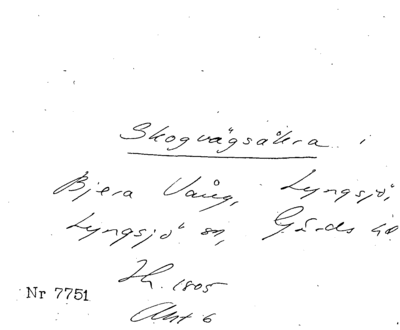 Skogvägsåkra i
Bjera Vång, Lyngsjö,
Lyngsjö sn, Gärds hd
Sh. 1805
Nr 7751
Akt 6